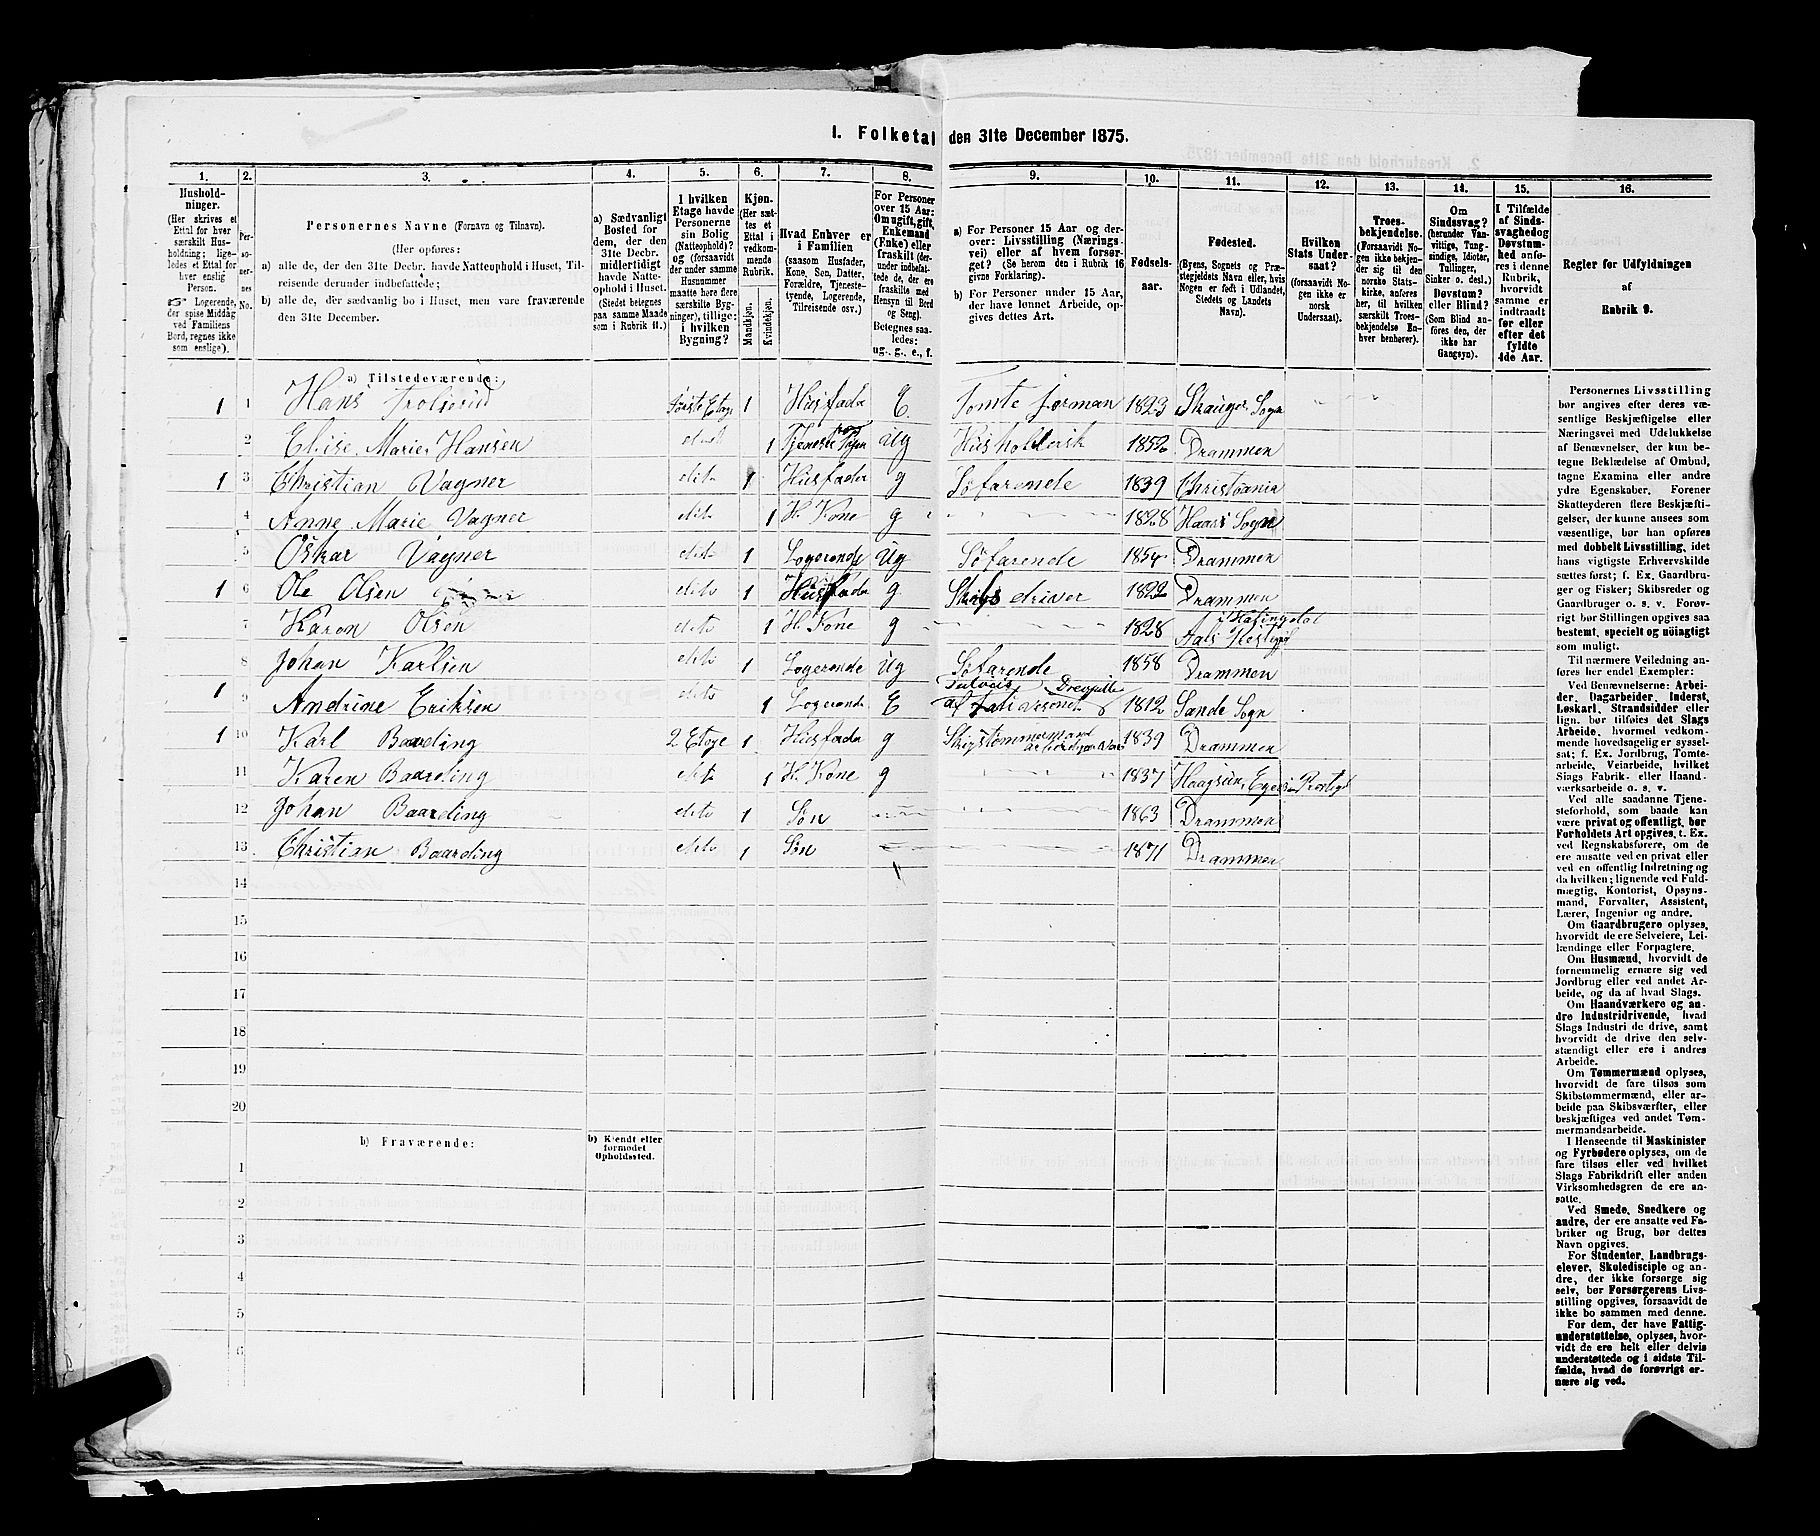 I. Folketal den 31te December 1875.
1. 2. 3. 4. 5. 6. 7. 8. 9. 10. 11. 12. 13. 14. 15. 16.
Husholdninger.
(Her skrives et
Ettal for hver
særskilt Hus-
holdning; lige-
ledes et Ettal for
hver enslig
Person.
☞ Logerende,
der spise Middag
ved Familiens
Bord, regnes ikke
som enslige).
Per-
so-
ner-
nes
No.
Personernes Navne (Fornavn og Tilnavn).
(Her opføres:
a) alle de, der den 31te Decbr. havde Natteophold i Huset, Til-
reisende derunder indbefattede;
b) alle de, der sædvanlig bo i Huset, men vare fraværende
den 31te December.
a) Sædvanligt
Bosted for
dem, der den
31te Decbr.
midlertidigt
havde Natte-
ophold i Huset.
(Stedet betegnes
paa samme Maade
som i Rubrik 11.)
I hvilken
Etage havde
Personerne
sin Bolig
(Natteophold)?
og (forsaavidt
der under samme
Husnummer
maatte høre flere
særskilte Byg-
ninger), tillige:
i hvilken
Bygning?
Kjøn.
(Her sæt-
tes et
Ettal i
vedkom-
mende
Rubrik.
Mandkjøn.
Kvindekjøn.
Hvad Enhver er
i Familien
(saasom Husfader,
Kone, Søn, Datter,
Forældre, Tjeneste-
tyende, Logerende,
Tilreisende osv.)
For Personer
over 15 Aar:
Om ugift, gift,
Enkemand
(Enke) eller
fraskilt (der-
under indbefat-
tede de, der
ere fraskilte med
Hensyn til Bord
og Seng).
Betegnes saa-
ledes:
ug., g., e., f.
a) For Personer 15 Aar og der-
over: Livsstilling (Nærings-
vei) eller af hvem forsør-
get? (Se herom den i Rubrik 16
givne Forklaring).
b) For Personer under 15 Aar,
der have lønnet Arbeide, op-
gives dettes Art.
Fødsels-
aar.
Fødested.
(Byens, Sognets og Præ-
stegjeldets Navn eller, hvis
Nogen er født i Udlandet,
Stedets og Landets
Navn).
Hvilken
Stats Under-
saat?
(forsaavidt No-
gen ikke er
norsk
Undersaat).
Troes-
bekjendelse.
(Forsaavidt No-
gen ikke bekjen-
der sig til den
norske Stats-
kirke, anføres
her, til hvilken
særskilt Troes-
bekjendelse En-
hver henhører).
Om
Sindssvag?
(herunder Van-
vittige, Tung-
sindige, Idioter,
Tullinger,
Sinker o. desl.).
Døvstum?
eller Blind?
(Som Blind an-
føres den, der
ikke har
Gangsyn).
I Tilfælde
af Sinds-
svaghed og
Døvstum-
hed anfø-
res i denne
Rubrik,
hvorvidt
samme er
indtraadt
før eller
efter det
fyldte
4de Aar.
Regler for Udfyldningen
af
Rubrik 9.
a) Tilstedeværende:
1 1 Hans Første Etage 1 Husfader E. Tomte forman 1823 Skauger Sogn
2 Elise Marie Hansen dito 1 Tjeneste ug Husholderske 1852 Drammen
1 3 Christian Vagner dito 1 Husfader g Søfarende 1839 Christiania
4 Anne Marie Vagner dito 1 H. Kone g 1828 Sogn
5 Oskar Vagner dito 1 Logerende ug Søfarende 1854 Drammen
1 6 Ole Olsen dito 1 Husfader g 1822 Drammen
7 Karen Olsen dito 1 H. Kone g 1828 Aals
8 Johan Karlsen dito 1 Logerende ug Søfarende 1858 Drammen
1 9 Andrine Eriksen dito 1 Logerende E af 1812 Sande Sogn
1 10 Karl Baarding 2 Etage 1 Husfader g Skibstømmermand 1839 Drammen
11 Karen Baarding dito 1 H. Kone g 1837
12 Johan Baarding dito 1 Søn 1863 Drammen
13 Christian Baarding dito 1 Søn 1871 Drammen
14
15
16
17
18
19
20
b) Fraværende:
b) Kjendt eller
formodet
Opholdssted.
1
2
3
4
5
6
Personernes Livsstilling
bør angives efter deres væ-
sentlige Beskjæftigelse eller
Næringsvei med Udelukkelse
af Benævnelser, der kun be-
tegne Beklædelse af Ombud,
tagne Examina eller andre
ydre Egenskaber. Forener
Skatteyderen flere Beskjæfti-
gelser, der kunne ansees som
væsentlige, bør han opføres
med dobbelt Livsstilling, idet
hans vigtigste Erhvervskilde
sættes først; f. Ex. Gaardbru-
ger og Fisker; Skibsreder og
Gaardbruger o. s. v. Forøv-
rigt bør Stillingen opgives saa
bestemt, specielt og nöiagtigt
som muligt.
Til nærmere Veiledning an-
føres her endel Exempler:
Ved Benævnelserne: Arbei-
der, Dagarbeider, Inderst,
Løskarl, Strandsidder eller
lign. bør tilføies det Slags
Arbeide, hvormed vedkom-
mende hovedsagelig er syssel-
sat; f. Ex. Jordbrug, Tomte-
arbeide, Veiarbeide, hvilket
Slags Fabrik- eller Haand-
værksarbeide o. s. v.
Ved alle saadanne Tjene-
steforhold, som baade kan
være privat og offentligt, bør
Forholdets Art opgives, t. Ex.
ved Regnskabsførere, om de
ere ansatte ved en privat eller
ved en offentlig Indretning og
da hvilken; lignende ved Fuld-
mægtig, Kontorist, Opsyns-
mand, Forvalter, Assistent,
Lærer, Ingeniør og andre.
Om Gaardbrugere oplyses,
hvorvidt de ere Selveiere, Lei-
lændinge eller Forpagtere.
Om Husmænd, hvorvidt de
fornemmelig ernære sig ved
Jordbrug eller ved andet Ar-
beide, og da af hvad Slags.
Om Haandværkere og an-
dre Industridrivende, hvad
Slags Industri de drive, samt
hvorvidt de drive den selv-
stændigt eller ere i andres
Arbeide.
Om Tømmermænd oplyses,
hvorvidt de fare tilsøs som
Skibstømmermænd, eller ar-
beide paa Skibsværfter, eller
beskjæftiges ved andet Tøm-
mermandsarbeide.
I Henseende til Maskinister
og Fyrbødere oplyses, om de
fare tilsøs eller ved hvilket
Slags Fabrikdrift eller anden
Virksomhedsgren de ere an-
satte.
Ved Smede, Snedkere og
andre, der ere ansatte ved Fa-
briker og Brug, bør dettes
Navn opgives.
For Studenter, Landbrugs-
elever, Skoledisciple og an-
dre, der ikke forsørge sig
selv, bør Forsørgerens Livs-
stilling opgives, forsaavidt de
ikke bo sammen med denne.
For dem, der have Fattig-
understøttelse, oplyses, hvor-
vidt de ere helt eller delvis
understøttede og i sidste Til-
fælde, hvad de forøvrigt er-
nære sig ved.